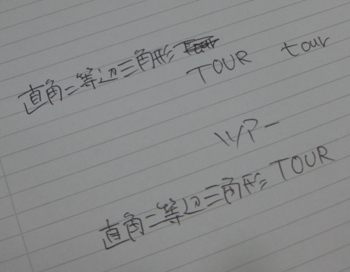 直角二等辺三角形 TOUR tour
ツアー
直角二等辺三角形 TOUR